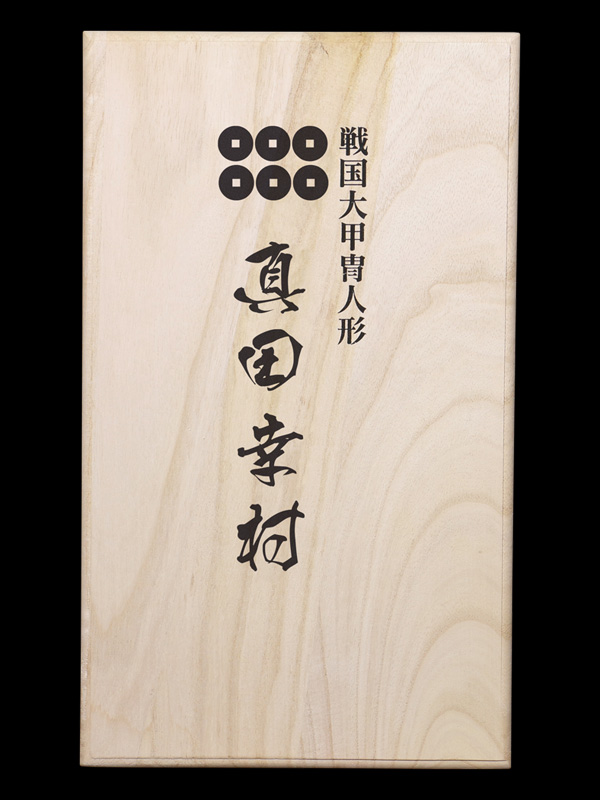 戦国大甲冑人形
真田幸村